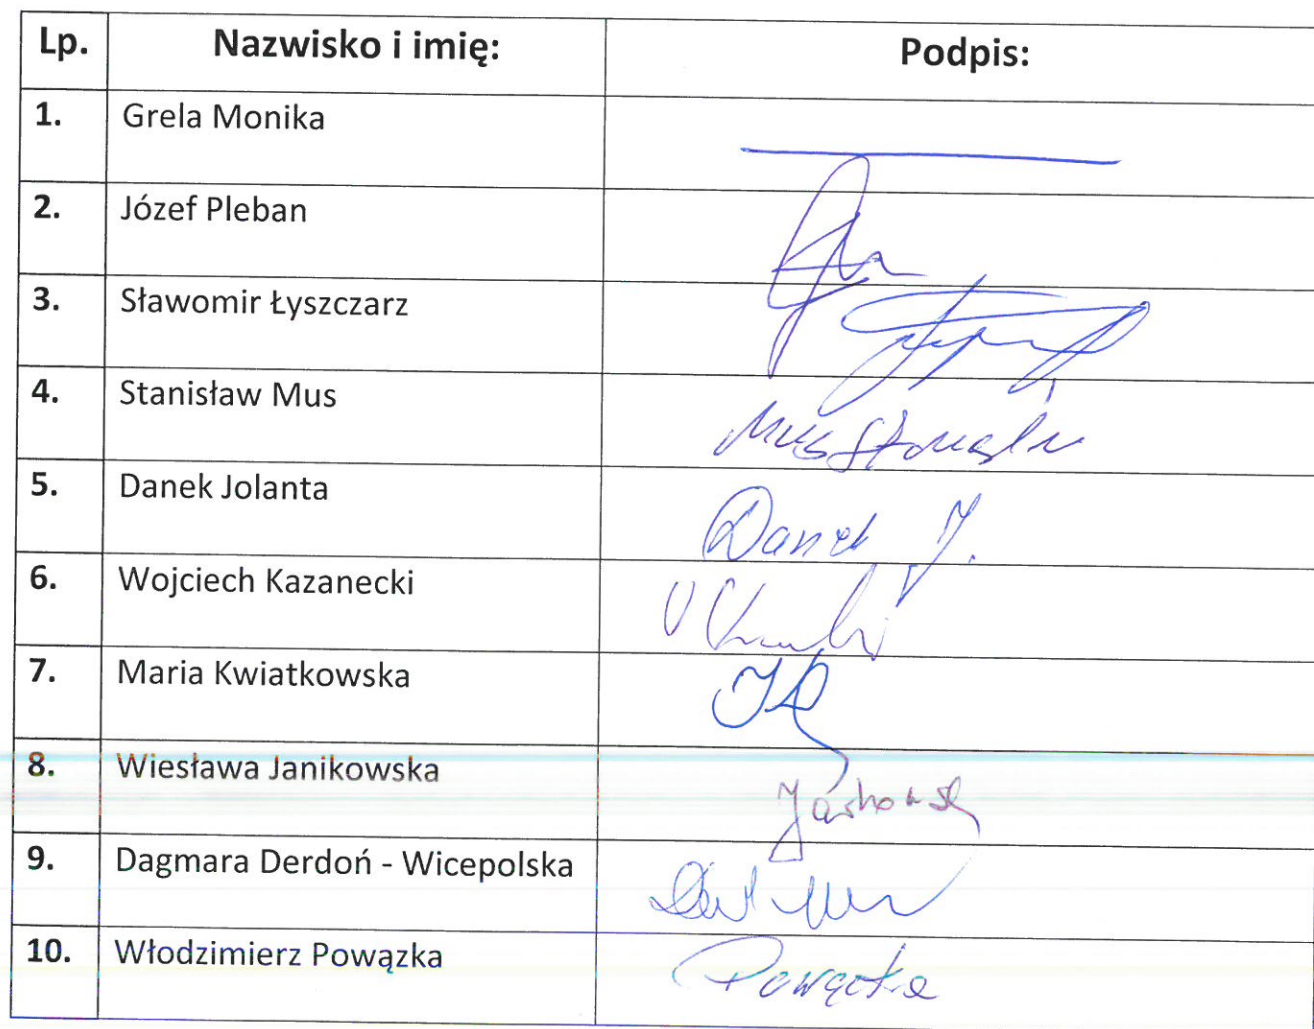 Lp. Nazwisko i imię: Podpis:
1. Grela Monika
2. Józef Pleban
3. Sławomir Łyszczarz
4. Stanisław Mus Mus
5. Danek Jolanta Danek J.
6. Wojciech Kazanecki
7. Maria Kwiatkowska
8. Wiesława Janikowska
9. Dagmara Derdoń - Wicepolska
10. Włodzimierz Powązka Powązka